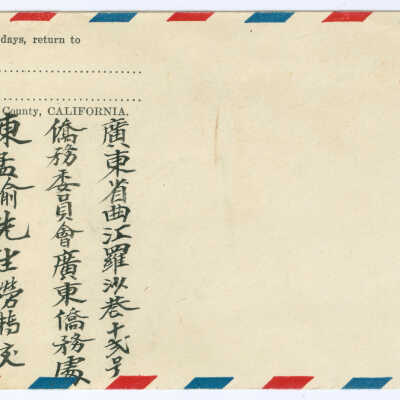 days, return to
County, CALIFORNIA.
廣東省曲江羅沙巷十弍号
僑務委員會廣東僑務處
東孟俞先生勞轉交